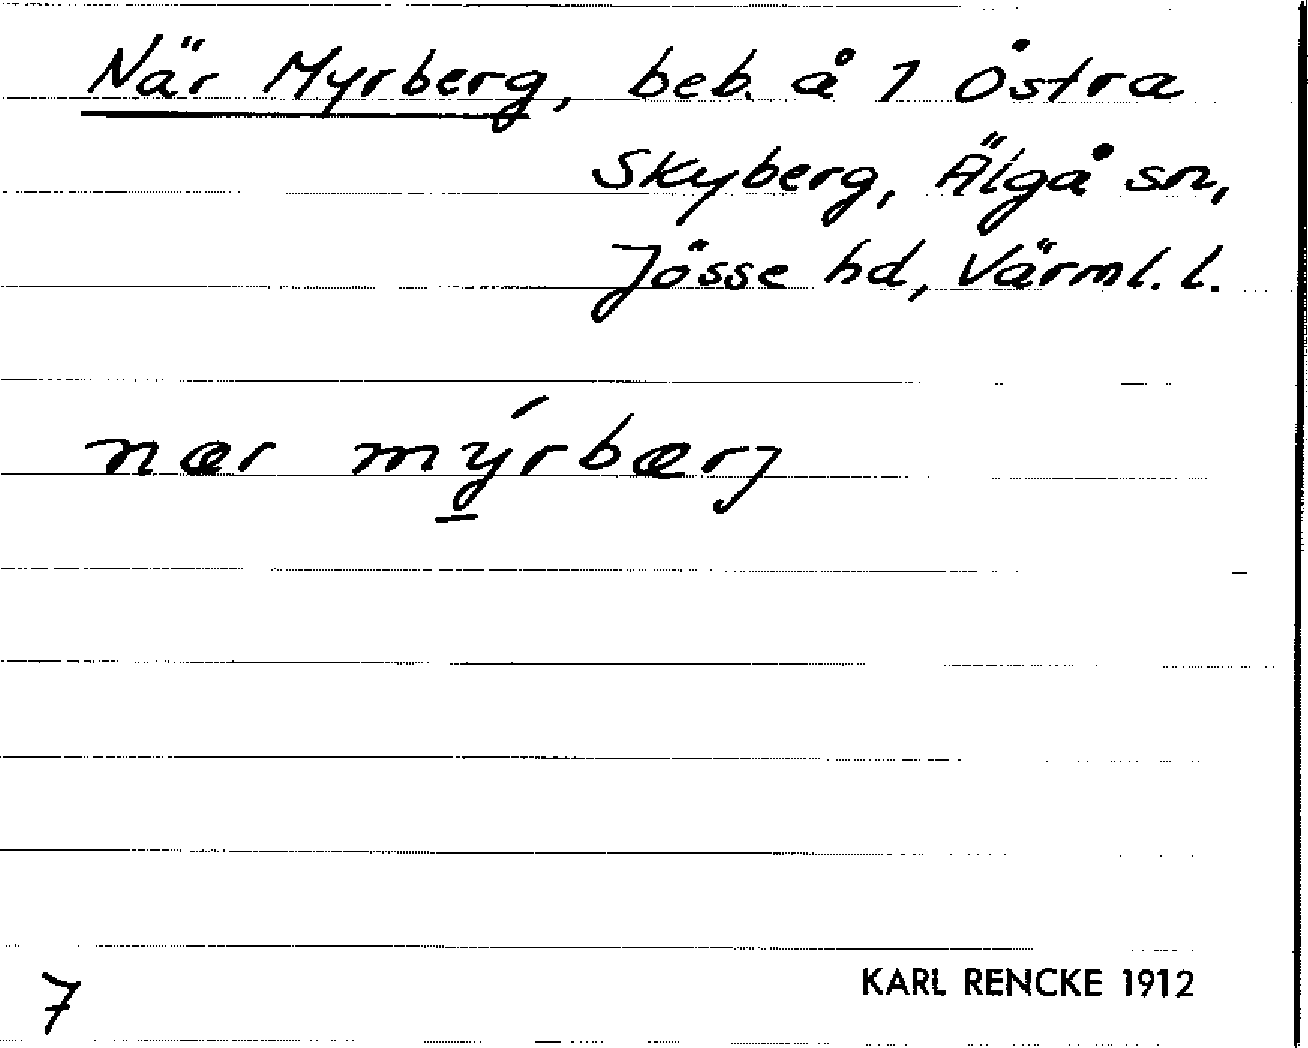 När Myrberg, beb. å 1 Östra
Skyberg, Älgå sn,
Jösse hd, Värml. l.
nær mýrbærj
7
KARL RENCKE 1912